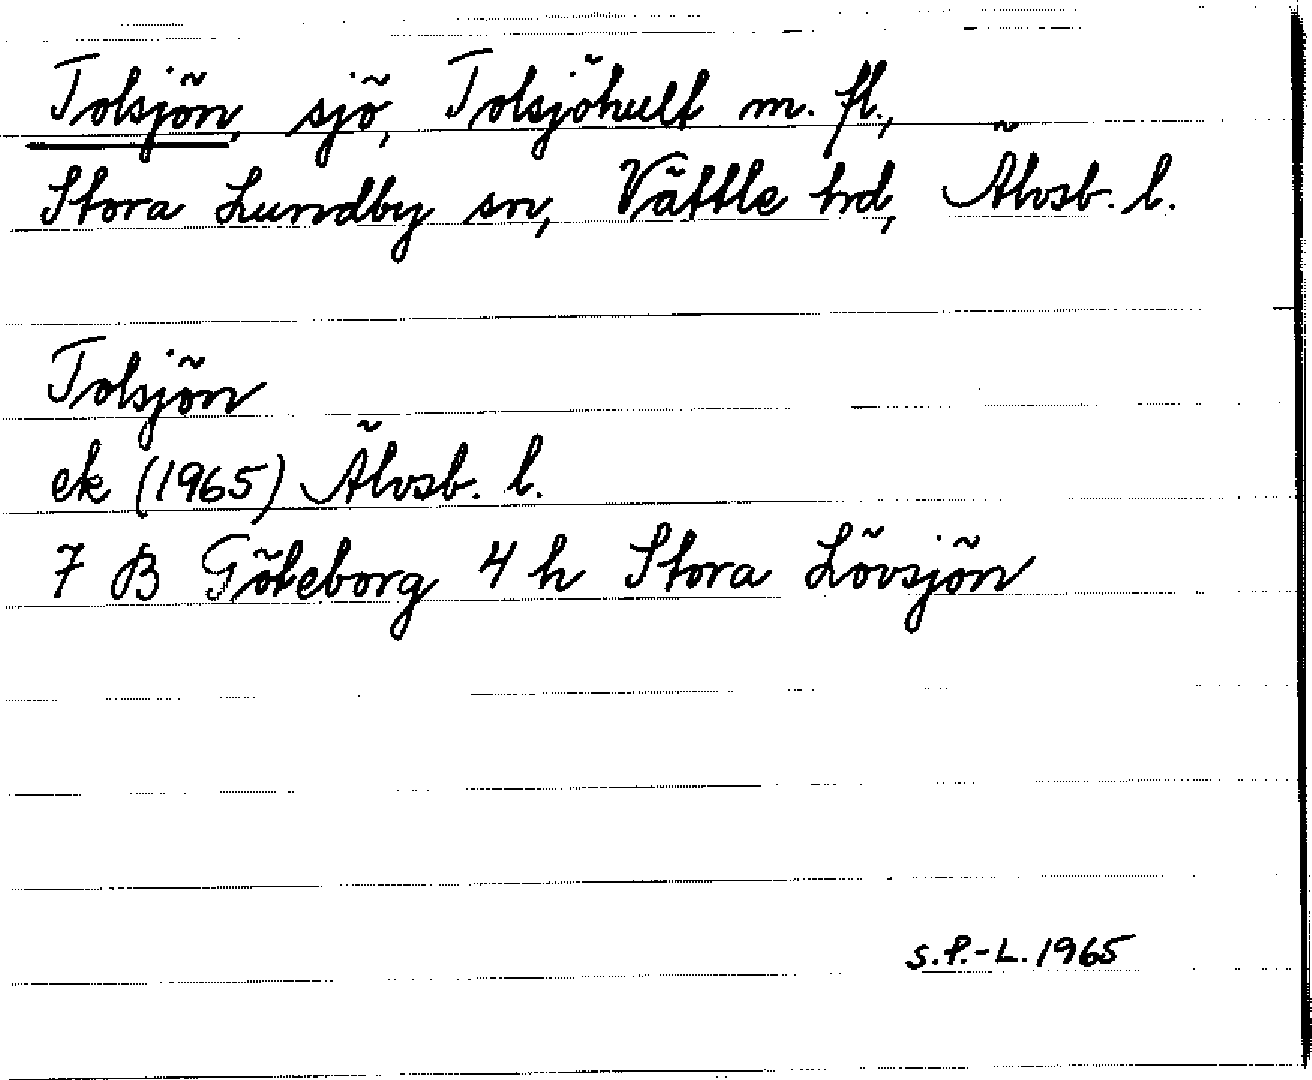 Tolsjön, sjö, Tolsjöhult m. fl.,
Stora Lundby sn, Vättle hd, Älvsb. l.
Tolsjön
ek (1965) Älvsb. l.
7 B Göteborg 4 h Stora Lövsjön
S.P.-L. 1965